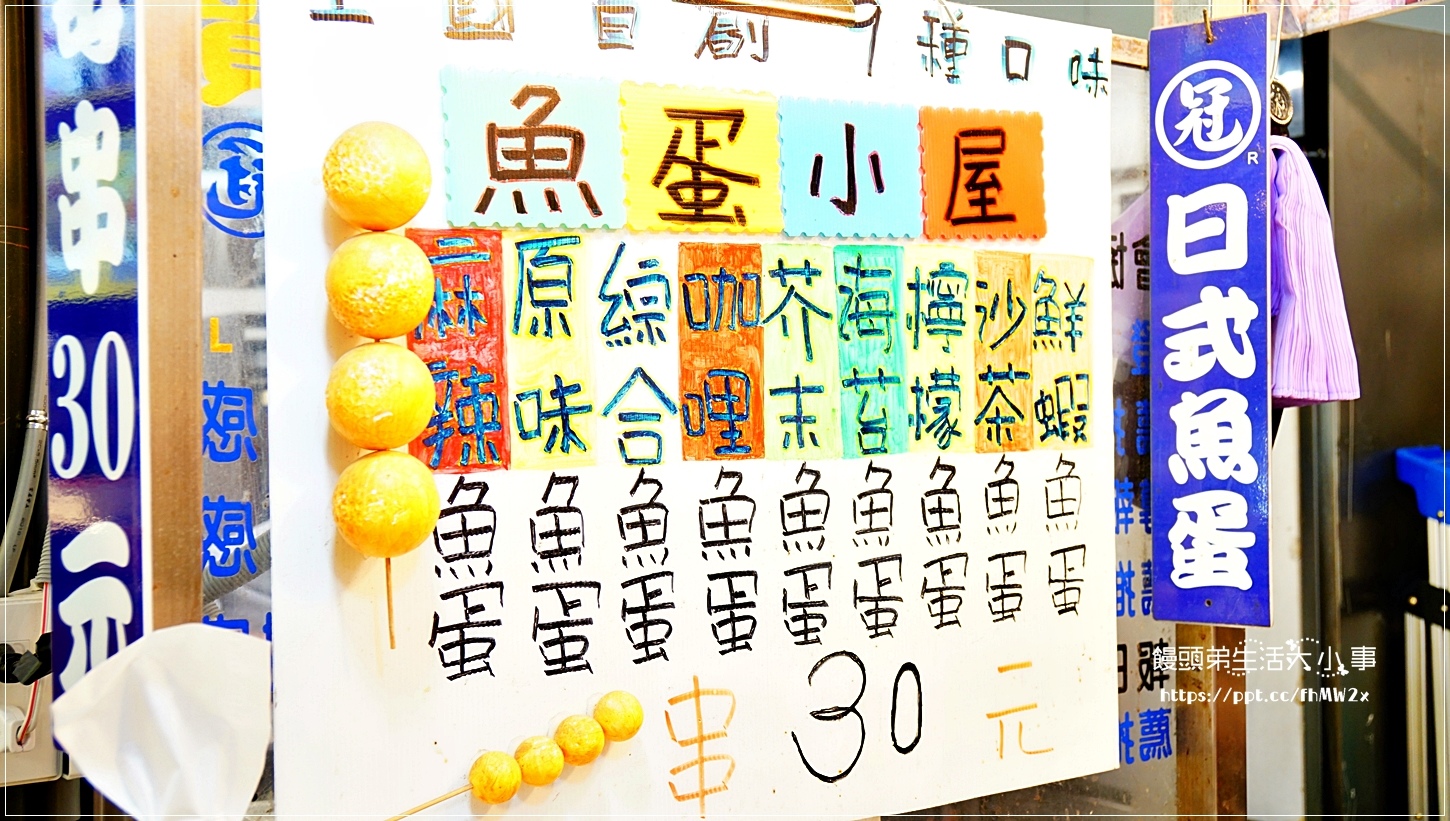 全國首創9種口味
魚蛋小屋
麻辣魚蛋
原味魚蛋
綜合魚蛋
咖哩魚蛋
芥末魚蛋
海苔魚蛋
檸檬魚蛋
沙茶魚蛋
鮮蝦魚蛋
串30元
串30元
冠R
日式魚蛋
饅頭弟生活大小事
https://ppt.cc/fhMW2x